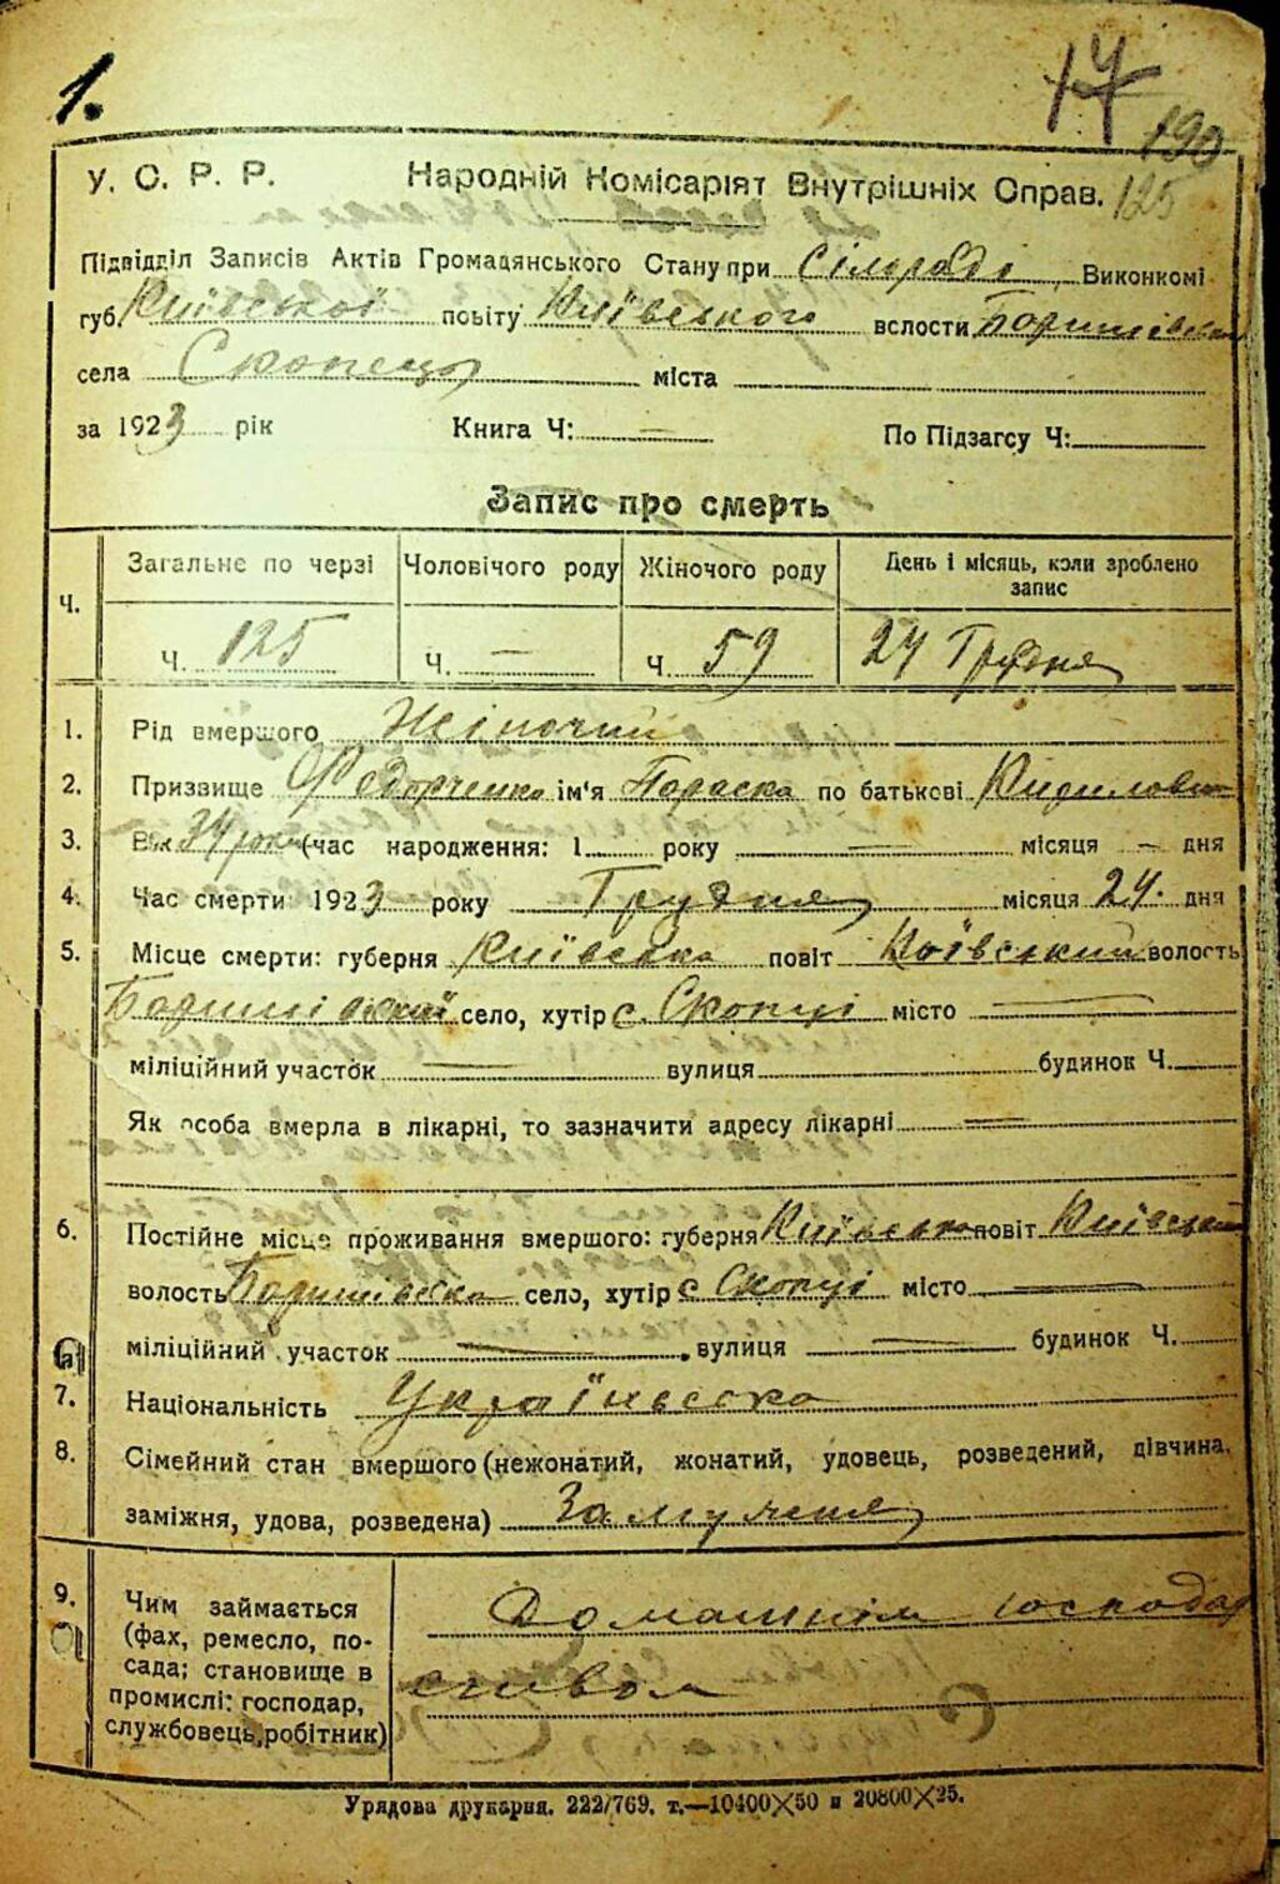 1.
14
190
У. С. Р. Р. Народній Комісаріят Внутрішніх Справ. 125
Підвідділ Записів Актів Громадянського Стану при Сільраді Виконкомі
губ. Київської повіту Київського вслости
села Скопець міста
за 1923 рік Книга Ч: — По Підзагсу Ч:
Запис про смерть
Ч. Загальне по черзі Чоловічого роду Жіночого роду День і місяць, коли зроблено запис
Ч. 125 Ч. — Ч. 59 24 Грудня
1. Рід вмершого Жіночий
2. Призвище Федорченко ім'я Параска по батькові
3. Вік 34 роки (час народження: 1 року — місяця — дня
4. Час смерти 1923 року Грудня місяця 24. дня
5. Місце смерти: губерня Київська повіт Київський волость
село, хутір с. Скопці місто —
міліційний участок — вулиця будинок Ч.
Як особа вмерла в лікарні, то зазначити адресу лікарні —
6. Постійне місце проживання вмершого: губерня Київська повіт Київський
волость село, хутір с Скопці місто —
міліційний участок — вулиця — будинок Ч.
7. Національність Українська
8. Сімейний стан вмершого (нежонатий, жонатий, удовець, розведений, дівчина,
заміжня, удова, розведена) Замужня
9. Чим займається Домашнім господар
(фах, ремесло, по-
сада; становище в ством
промислі: господар,
службовець, робітник)
Урядова друкарня. 222/769. т.—10400×50 и 20800×25.